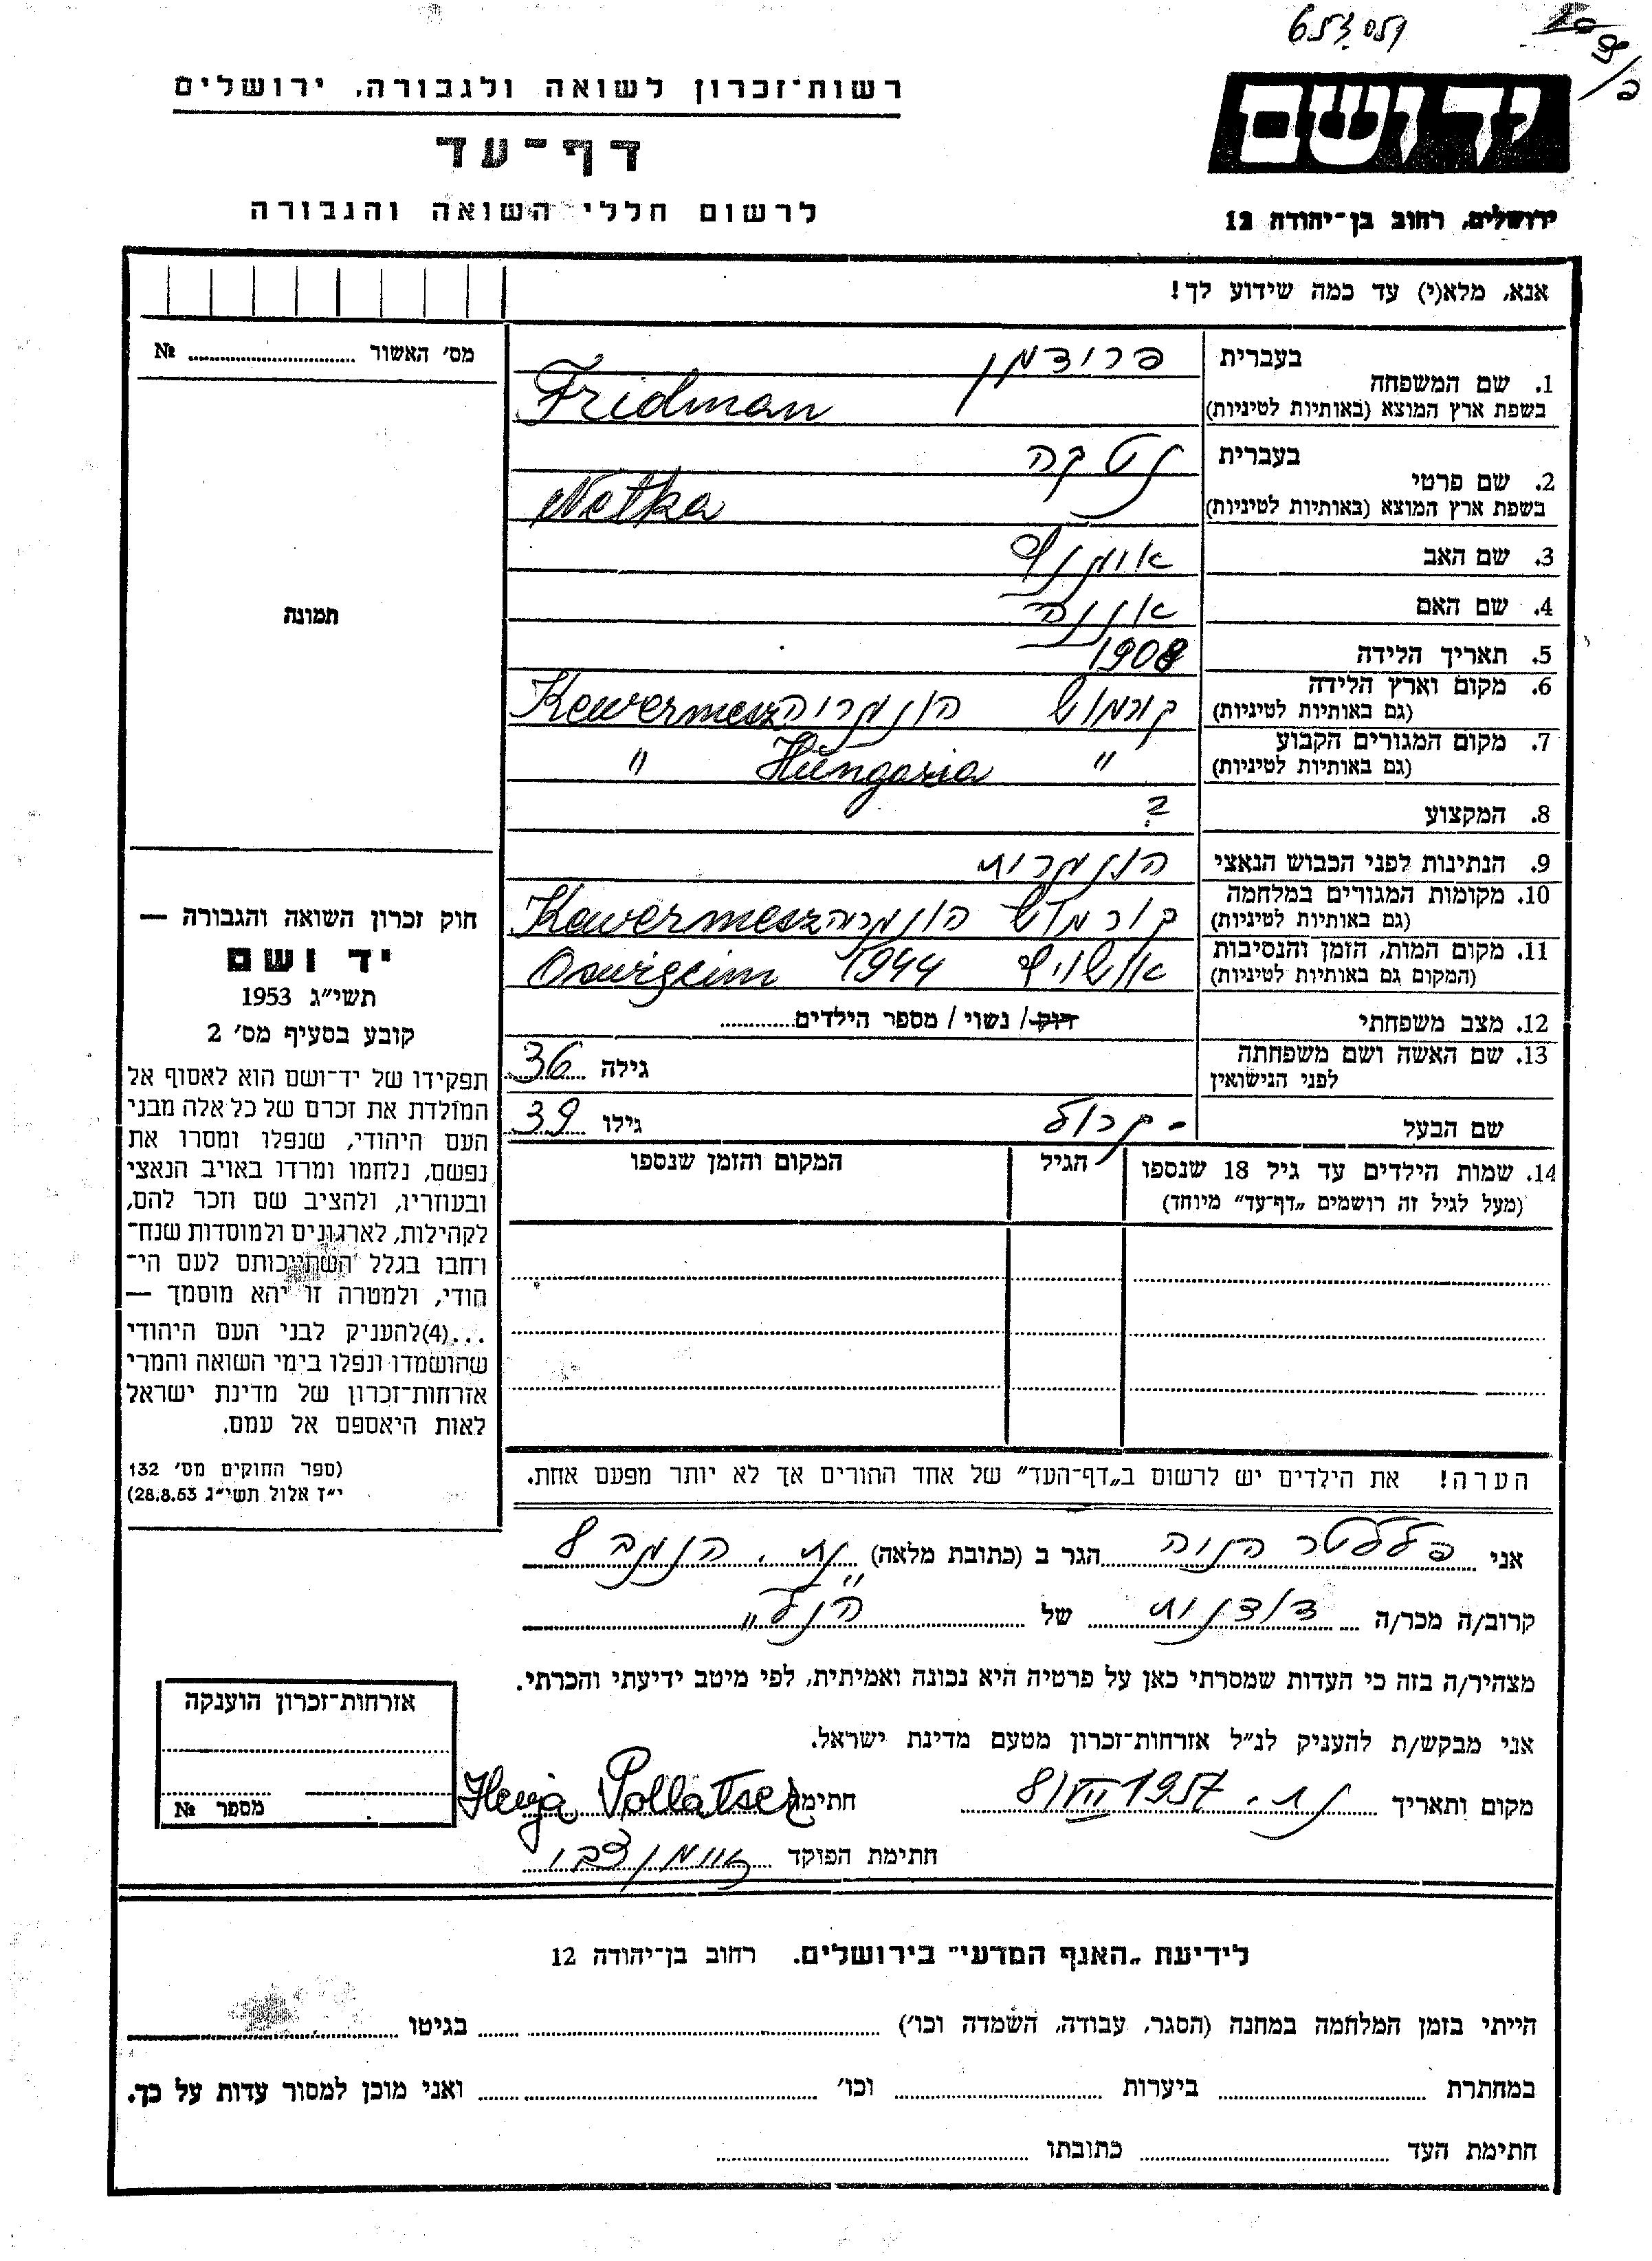 653051
רשות־זכרון לשואה ולגבורה, ירושלים
דף־עד
לרשום חללי השואה והגבורה
יד ושם
ירושלים, רחוב בן־יהודה 12
אנא, מלא(י) עד כמה שידוע לך!
מס׳ האשור № ..........
תמונה
1. שם המשפחה בעברית פרידמן
בשפת ארץ המוצא (באותיות לטיניות) Fridman
2. שם פרטי בעברית נטקה
בשפת ארץ המוצא (באותיות לטיניות) Netka
3. שם האב
4. שם האם
5. תאריך הלידה 1908
6. מקום וארץ הלידה
(גם באותיות לטיניות) הונגריה Kewermesz
7. מקום המגורים הקבוע
(גם באותיות לטיניות) " Hungaria "
8. המקצוע ?
9. הנתינות לפני הכבוש הנאצי הונגרית
10. מקומות המגורים במלחמה
(גם באותיות לטיניות) הונגריה Kewermesz
11. מקום המות, הזמן והנסיבות
(המקום גם באותיות לטיניות) 1944
12. מצב משפחתי רוק / נשוי / מספר הילדים..........
13. שם האשה ושם משפחתה
לפני הנישואין גילה 36
שם הבעל - קרול גילו 39
14. שמות הילדים עד גיל 18 שנספו הגיל המקום והזמן שנספו
(מעל לגיל זה רושמים „דף־עד” מיוחד)
חוק זכרון השואה והגבורה —
יד ושם
תשי״ג 1953
קובע בסעיף מס׳ 2
תפקידו של יד־ושם הוא לאסוף אל
המולדת את זכרם של כל אלה מבני
העם היהודי, שנפלו ומסרו את
נפשם, נלחמו ומרדו באויב הנאצי
ובעוזריו, ולהציב שם וזכר להם,
לקהילות, לארגונים ולמוסדות שנח־
רבו בגלל השתייכותם לעם הי־
הודי, ולמטרה זו יהא מוסמך —
...(4)להעניק לבני העם היהודי
שהושמדו ונפלו בימי השואה והמרי
אזרחות־זכרון של מדינת ישראל
לאות היאספם אל עמם.
(ספר החוקים מס׳ 132
י״ז אלול תשי״ג 28.8.53)
הערה! את הילדים יש לרשום ב„דף־העד” של אחד ההורים אך לא יותר מפעם אחת.
אני הגר ב (כתובת מלאה)
קרוב/ה מכר/ה דודנות של הנ״ל
מצהיר/ה בזה כי העדות שמסרתי כאן על פרטיה היא נכונה ואמיתית, לפי מיטב ידיעתי והכרתי.
אני מבקש/ת להעניק לנ״ל אזרחות־זכרון מטעם מדינת ישראל.
מקום ותאריך 8/VIII 1957 חתימה Henja Pollatsek
חתימת הפוקד
אזרחות־זכרון הוענקה
מספר №
לידיעת „האגף המדעי” בירושלים. רחוב בן־יהודה 12
הייתי בזמן המלחמה במחנה (הסגר, עבודה, השמדה וכו׳) .......... בגיטו ..........
במחתרת .......... ביערות .......... וכו׳ .......... ואני מוכן למסור עדות על כך.
חתימת העד .......... כתובתו ..........